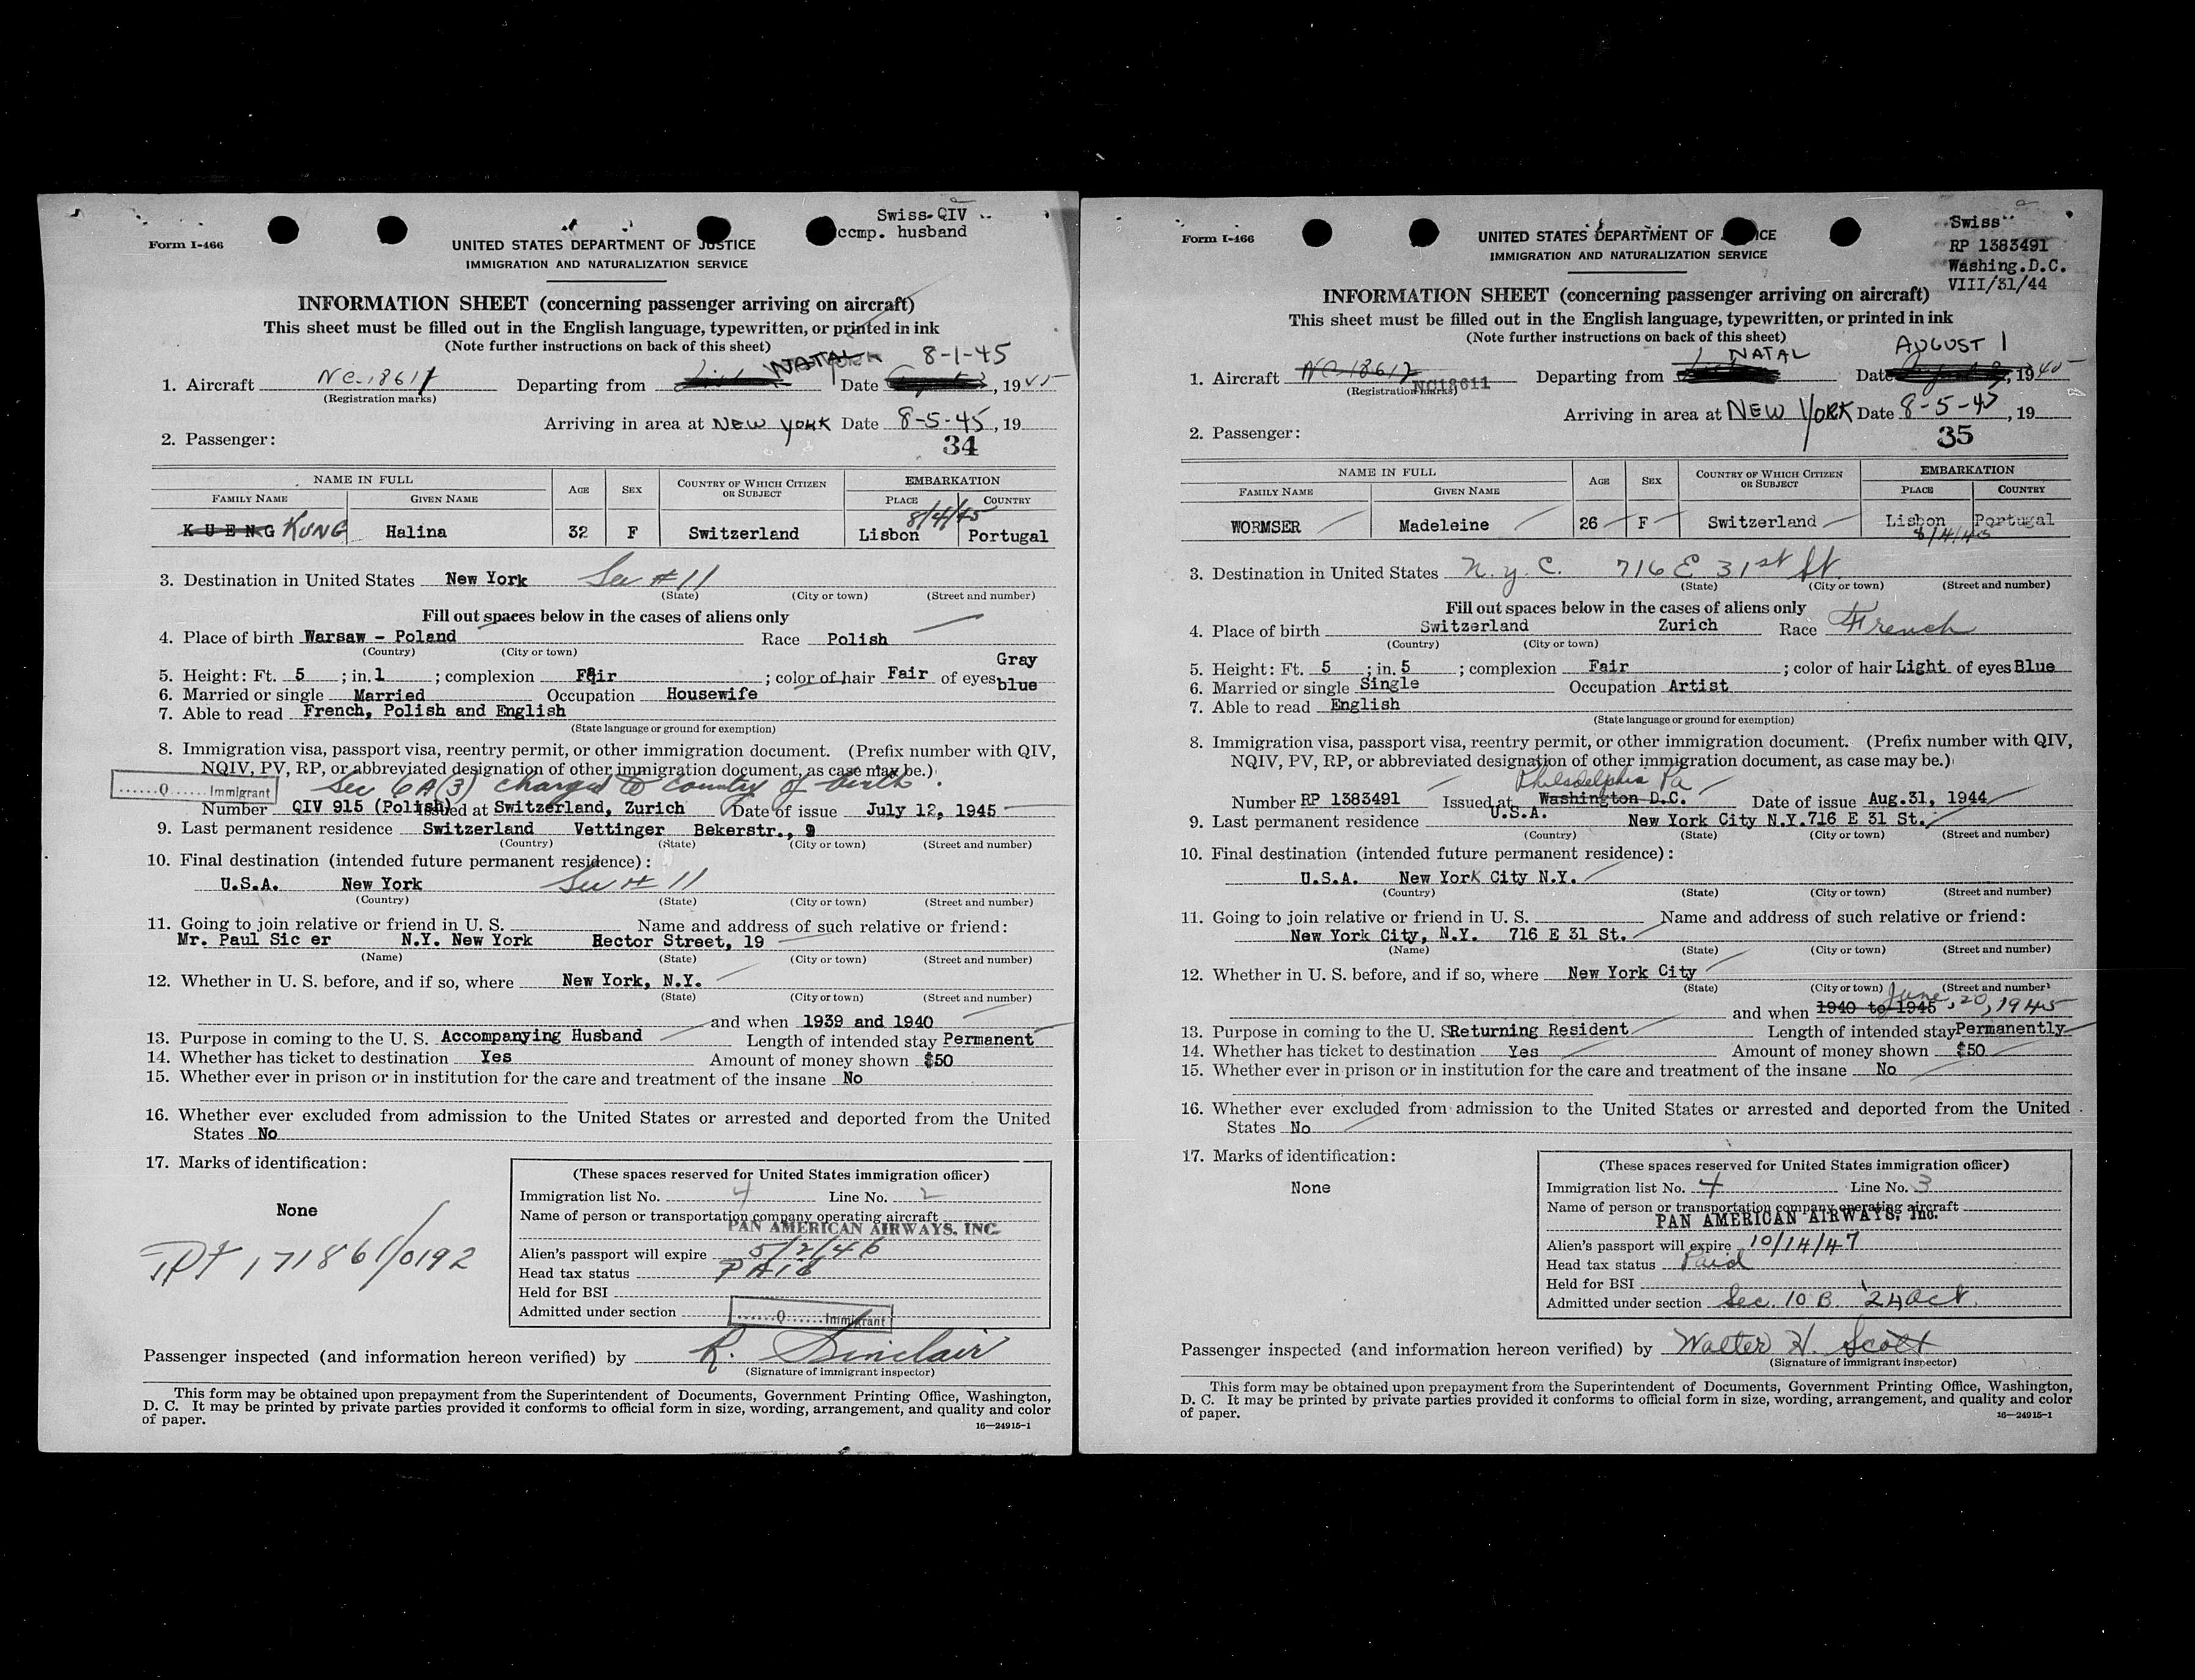 Swiss-QIV
ccmp. husband
Form I-466
UNITED STATES DEPARTMENT OF JUSTICE
IMMIGRATION AND NATURALIZATION SERVICE
INFORMATION SHEET (concerning passenger arriving on aircraft)
This sheet must be filled out in the English language, typewritten, or printed in ink
(Note further instructions on back of this sheet)
NATAL 8-1-45
1. Aircraft NC-18611 Departing from Date , 1945
(Registration marks)
Arriving in area at NEW YORK Date 8-5-45, 19
2. Passenger: 34
NAME IN FULL AGE SEX COUNTRY OF WHICH CITIZEN OR SUBJECT EMBARKATION
FAMILY NAME GIVEN NAME PLACE COUNTRY
8/4/45
KUENG KUNG Halina 32 F Switzerland Lisbon Portugal
3. Destination in United States New York See # 11
(State) (City or town) (Street and number)
Fill out spaces below in the cases of aliens only
4. Place of birth Warsaw - Poland Race Polish
(Country) (City or town)
5. Height: Ft. 5 ; in. 1 ; complexion Fair ; color of hair Fair of eyes Gray blue
6. Married or single Married Occupation Housewife
7. Able to read French, Polish and English
(State language or ground for exemption)
8. Immigration visa, passport visa, reentry permit, or other immigration document. (Prefix number with QIV,
NQIV, PV, RP, or abbreviated designation of other immigration document, as case may be.)
Q Immigrant Sec 6A(3) charged to country of birth.
Number QIV 915 (Polish) Issued at Switzerland, Zurich Date of issue July 12, 1945
9. Last permanent residence Switzerland Vettinger Bekerstr., 9
(Country) (State) (City or town) (Street and number)
10. Final destination (intended future permanent residence):
U.S.A. New York See # 11
(Country) (State) (City or town) (Street and number)
11. Going to join relative or friend in U. S. Name and address of such relative or friend:
Mr. Paul Sic er N.Y. New York Rector Street, 19
(Name) (State) (City or town) (Street and number)
12. Whether in U. S. before, and if so, where New York, N.Y.
(State) (City or town) (Street and number)
and when 1939 and 1940
13. Purpose in coming to the U. S. Accompanying Husband Length of intended stay Permanent
14. Whether has ticket to destination Yes Amount of money shown $50
15. Whether ever in prison or in institution for the care and treatment of the insane No
16. Whether ever excluded from admission to the United States or arrested and deported from the United
States No
17. Marks of identification:
None
(These spaces reserved for United States immigration officer)
Immigration list No. 4 Line No. 2
Name of person or transportation company operating aircraft
PAN AMERICAN AIRWAYS, INC.
Alien's passport will expire 5/2/46
Head tax status PAid
Held for BSI
Admitted under section Q Immigrant
Passenger inspected (and information hereon verified) by R. Sinclair
(Signature of immigrant inspector)
This form may be obtained upon prepayment from the Superintendent of Documents, Government Printing Office, Washington,
D. C. It may be printed by private parties provided it conforms to official form in size, wording, arrangement, and quality and color
of paper. 16—24915-1
Swiss
RP 1383491
Washing.D.C.
VIII/31/44
Form I-466
UNITED STATES DEPARTMENT OF ICE
IMMIGRATION AND NATURALIZATION SERVICE
INFORMATION SHEET (concerning passenger arriving on aircraft)
This sheet must be filled out in the English language, typewritten, or printed in ink
(Note further instructions on back of this sheet)
NATAL AUGUST 1
1. Aircraft NC-18612 NC18611 Departing from Date , 1945
(Registration marks)
Arriving in area at NEW YORK Date 8-5-45, 19
2. Passenger: 35
NAME IN FULL AGE SEX COUNTRY OF WHICH CITIZEN OR SUBJECT EMBARKATION
FAMILY NAME GIVEN NAME PLACE COUNTRY
WORMSER Madeleine 26 F Switzerland Lisbon Portugal
8/4/45
3. Destination in United States N.Y.C. 716 E 31st St.
(State) (City or town) (Street and number)
Fill out spaces below in the cases of aliens only
4. Place of birth Switzerland Zurich Race French
(Country) (City or town)
5. Height: Ft. 5 ; in. 5 ; complexion Fair ; color of hair Light of eyes Blue
6. Married or single Single Occupation Artist
7. Able to read English
(State language or ground for exemption)
8. Immigration visa, passport visa, reentry permit, or other immigration document. (Prefix number with QIV,
NQIV, PV, RP, or abbreviated designation of other immigration document, as case may be.)
Philadelphia Pa
Number RP 1383491 Issued at Washington D.C. Date of issue Aug.31, 1944
9. Last permanent residence U.S.A. New York City N.Y. 716 E 31 St.
(Country) (State) (City or town) (Street and number)
10. Final destination (intended future permanent residence):
U.S.A. New York City N.Y.
(Country) (State) (City or town) (Street and number)
11. Going to join relative or friend in U. S. Name and address of such relative or friend:
New York City, N.Y. 716 E 31 St.
(Name) (State) (City or town) (Street and number)
12. Whether in U. S. before, and if so, where New York City
(State) (City or town) (Street and number)
and when 1940 to 1945 June, 20, 1945
13. Purpose in coming to the U. S. Returning Resident Length of intended stay Permanently
14. Whether has ticket to destination Yes Amount of money shown $50
15. Whether ever in prison or in institution for the care and treatment of the insane No
16. Whether ever excluded from admission to the United States or arrested and deported from the United
States No
17. Marks of identification:
None
(These spaces reserved for United States immigration officer)
Immigration list No. 4 Line No. 3
Name of person or transportation company operating aircraft
PAN AMERICAN AIRWAYS, Inc.
Alien's passport will expire 10/14/47
Head tax status Paid
Held for BSI
Admitted under section Sec. 10 B '24 Act.
Passenger inspected (and information hereon verified) by Walter H. Scott
(Signature of immigrant inspector)
This form may be obtained upon prepayment from the Superintendent of Documents, Government Printing Office, Washington,
D. C. It may be printed by private parties provided it conforms to official form in size, wording, arrangement, and quality and color
of paper. 16—24915-1